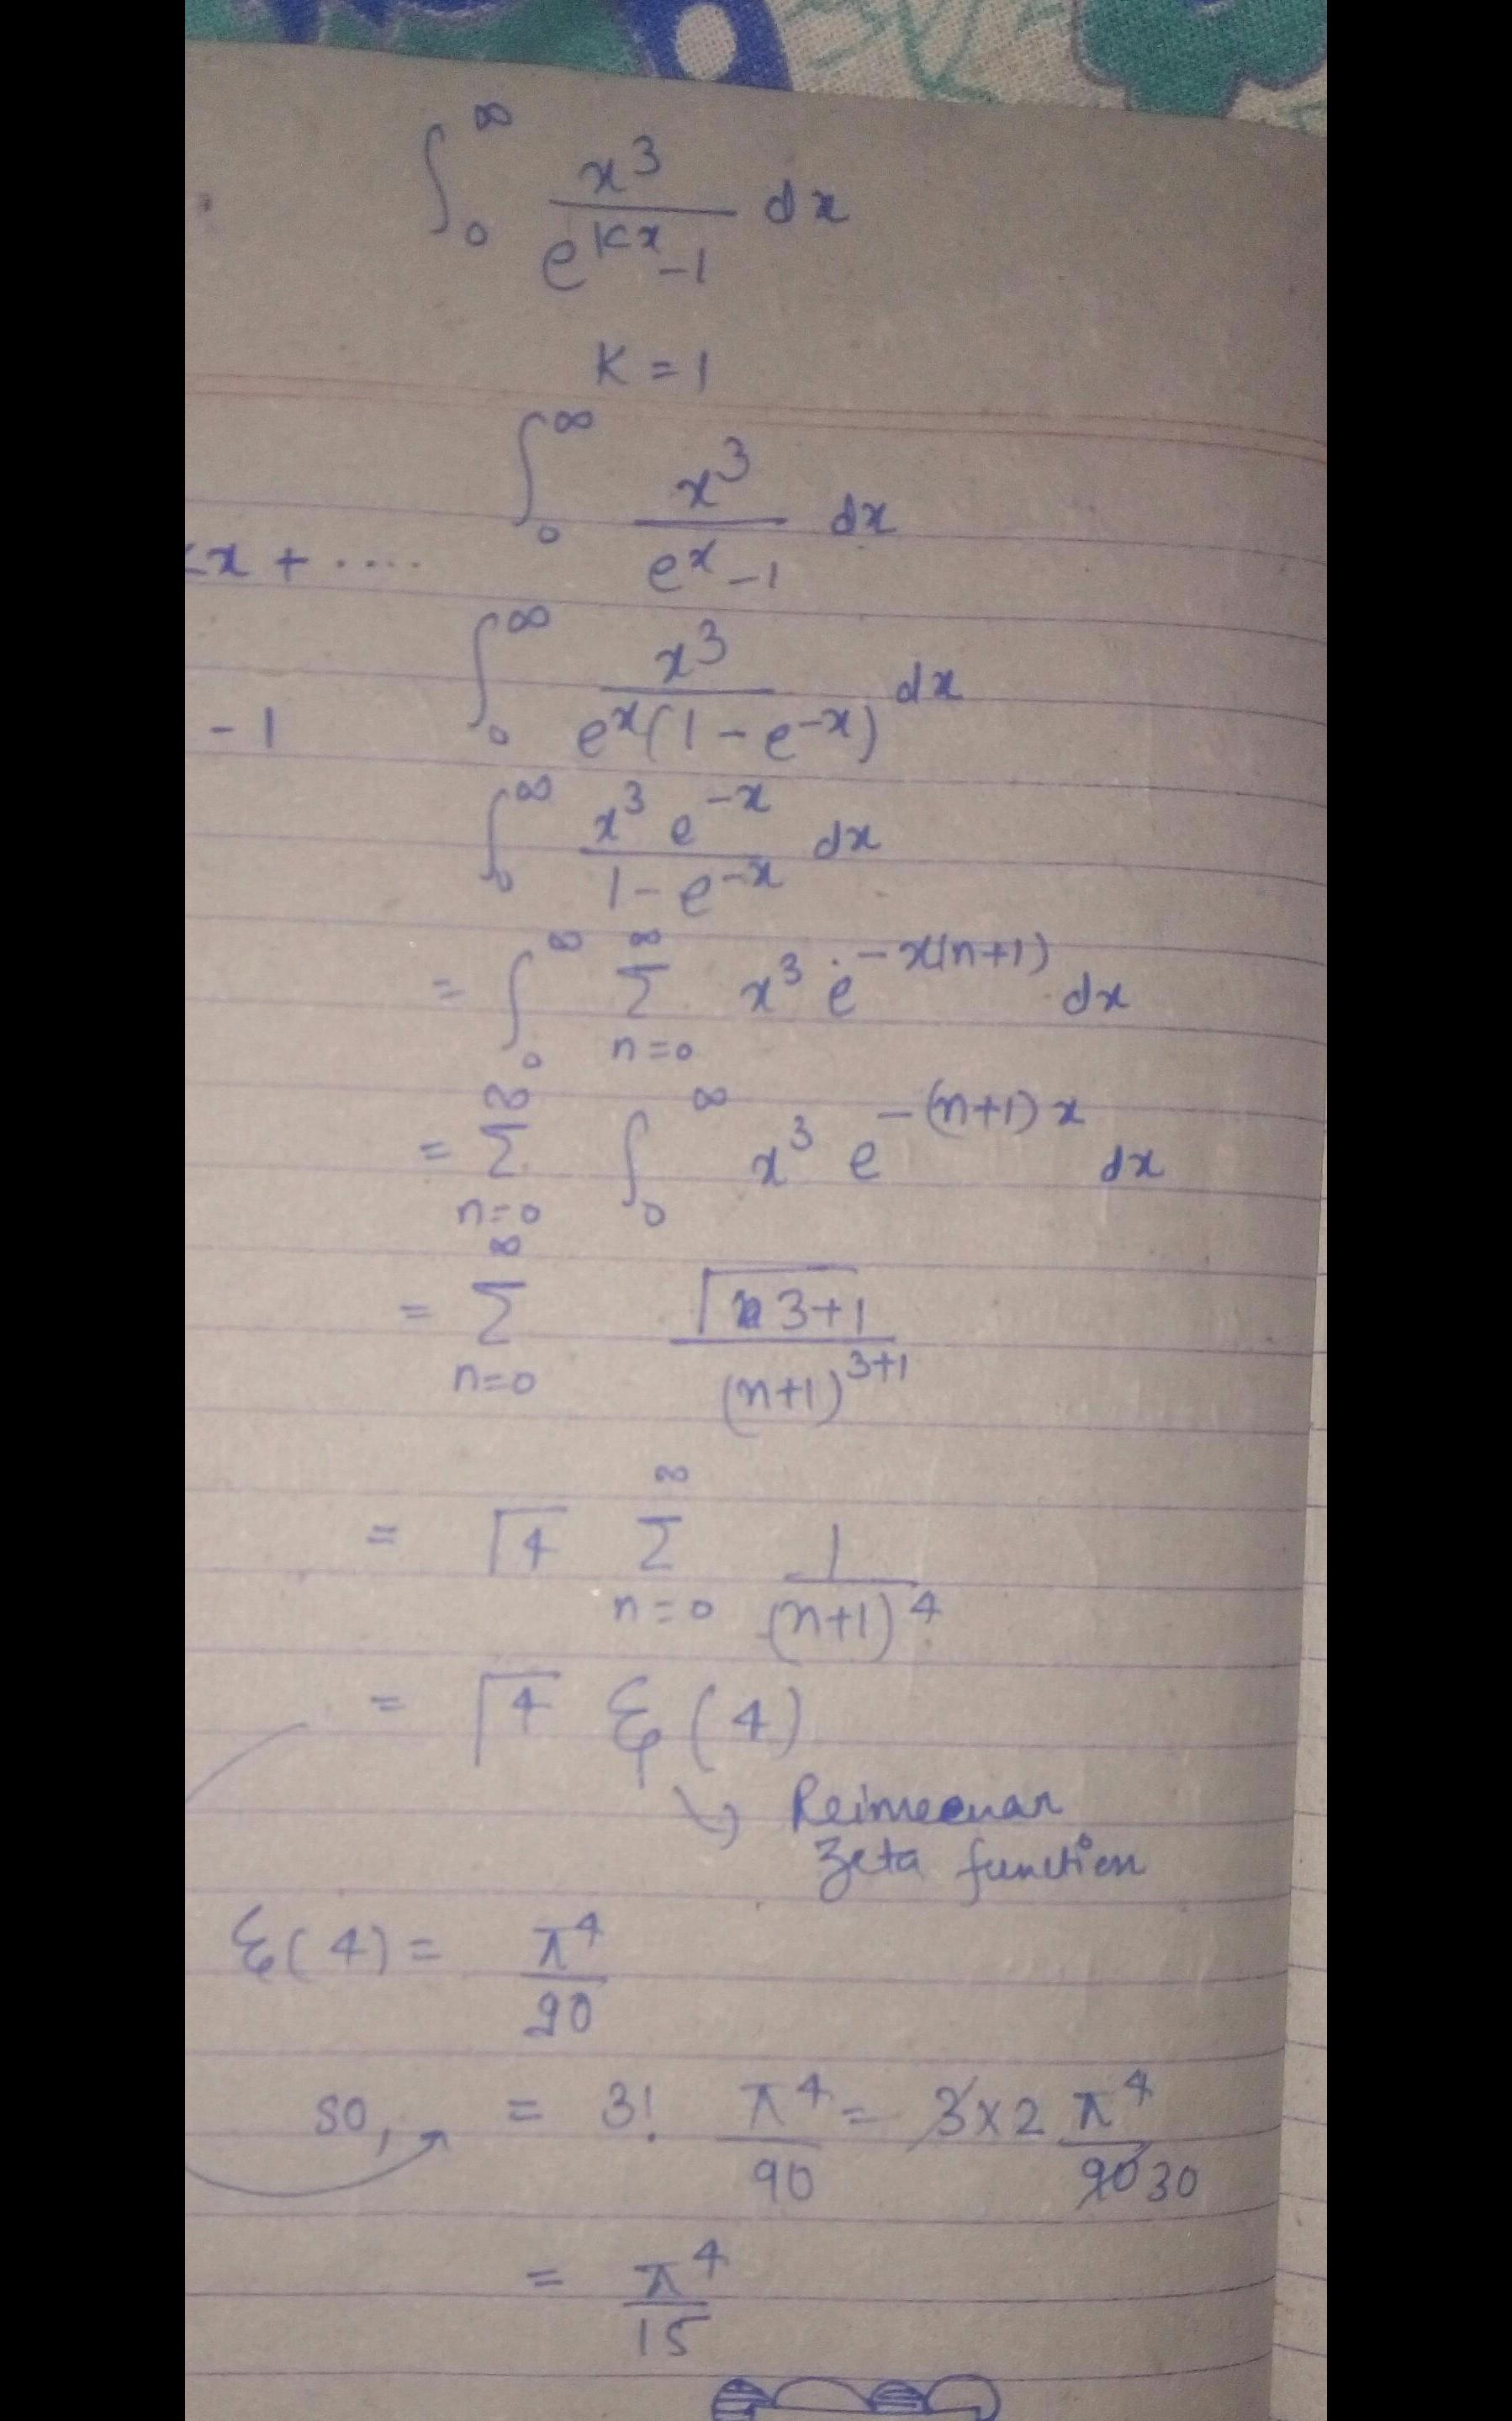 ∫₀^∞ x³/(e^(Kx) - 1) dx
K = 1
∫₀^∞ x³/(e^x - 1) dx
x + ....
∫₀^∞ x³/(e^x(1 - e^(-x))) dx
- 1
∫₀^∞ x³ e^(-x)/(1 - e^(-x)) dx
= ∫₀^∞ Σ_(n=0)^∞ x³ e^(-x(n+1)) dx
= Σ_(n=0)^∞ ∫₀^∞ x³ e^(-(n+1)x) dx
= Σ_(n=0)^∞ Γ3+1/(n+1)^(3+1)
= Γ4 Σ_(n=0)^∞ 1/(n+1)^4
= Γ4 ξ(4)
Reimeenan
Zeta function
ξ(4) = π⁴/90
so, = 3! π⁴/90 = 3×2 π⁴/90 30
= π⁴/15